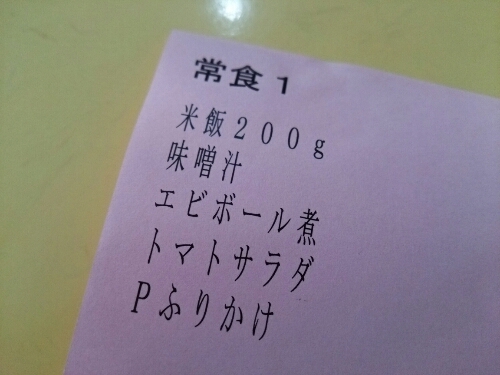 常食１
米飯２００ｇ
味噌汁
エビボール煮
トマトサラダ
Ｐふりかけ